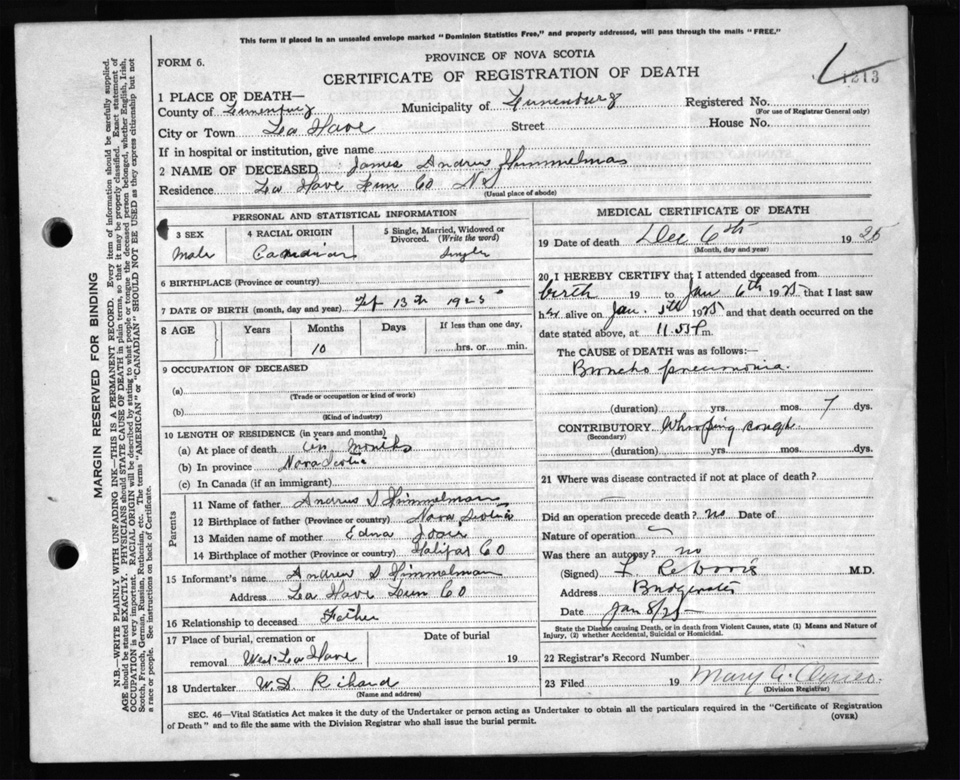 This form if placed in an unsealed envelope marked "Dominion Statistics Free," and properly addressed, will pass through the mails "FREE."
FORM 6.
PROVINCE OF NOVA SCOTIA
CERTIFICATE OF REGISTRATION OF DEATH
1213
1 PLACE OF DEATH—
County of Lunenburg Municipality of Lunenburg Registered No.
(For use of Registrar General only)
City or Town La Have Street House No.
If in hospital or institution, give name
2 NAME OF DECEASED James Andrew Himmelman
Residence La Have Lun Co NS
(Usual place of abode)
PERSONAL AND STATISTICAL INFORMATION
3 SEX 4 RACIAL ORIGIN 5 Single, Married, Widowed or Divorced. (Write the word)
Male Canadian Single
6 BIRTHPLACE (Province or country)
7 DATE OF BIRTH (month, day and year) 13th 1925
8 AGE Years Months Days If less than one day,
10 hrs. or min.
9 OCCUPATION OF DECEASED
(a)
(Trade or occupation or kind of work)
(b)
(Kind of industry)
10 LENGTH OF RESIDENCE (in years and months)
(a) At place of death months
(b) In province Nova Scotia
(c) In Canada (if an immigrant)
Parents
11 Name of father Andrew S Himmelman
12 Birthplace of father (Province or country) Nova Scotia
13 Maiden name of mother Edna
14 Birthplace of mother (Province or country) Halifax Co
15 Informant's name Andrew S Himmelman
Address La Have Lun Co
16 Relationship to deceased Father
17 Place of burial, cremation or Date of burial
removal West La Have 19
18 Undertaker W.D. Rihard
(Name and address)
MEDICAL CERTIFICATE OF DEATH
19 Date of death Dec 6th 1925
(Month, day and year)
20 I HEREBY CERTIFY that I attended deceased from
birth 19 to Jan 6th 1925 that I last saw
her alive on Jan. 5th 1925 and that death occurred on the
date stated above, at 11.55 P m.
The CAUSE of DEATH was as follows:—
Broncho pneumonia.
(duration) yrs. mos. 7 dys.
CONTRIBUTORY Whooping cough
(Secondary)
(duration) yrs. mos. dys.
21 Where was disease contracted if not at place of death?
Did an operation precede death? no Date of
Nature of operation
Was there an autopsy? no
(Signed) M.D.
Address Bridgewater
Date Jan 8/25
State the Disease causing Death, or in death from Violent Causes, state (1) Means and Nature of
Injury, (2) whether Accidental, Suicidal or Homicidal.
22 Registrar's Record Number
23 Filed 19 Mary
(Division Registrar)
SEC. 46—Vital Statistics Act makes it the duty of the Undertaker or person acting as Undertaker to obtain all the particulars required in the "Certificate of Registration
of Death" and to file the same with the Division Registrar who shall issue the burial permit.
(OVER)
MARGIN RESERVED FOR BINDING
N.B.—WRITE PLAINLY WITH UNFADING INK—THIS IS A PERMANENT RECORD. Every item of information should be carefully supplied.
AGE should be stated EXACTLY. PHYSICIANS should STATE CAUSE OF DEATH in plain terms, so that it may be properly classified. Exact statement of
OCCUPATION is very important. RACIAL ORIGIN will be described by stating to what people or tongue the deceased person belonged, whether English, Irish,
Scotch, French, German, Russian, Ruthenian, etc. The terms "AMERICAN" or "CANADIAN" SHOULD NOT BE USED as they express citizenship but not
a race or people. See instructions on back of Certificate.